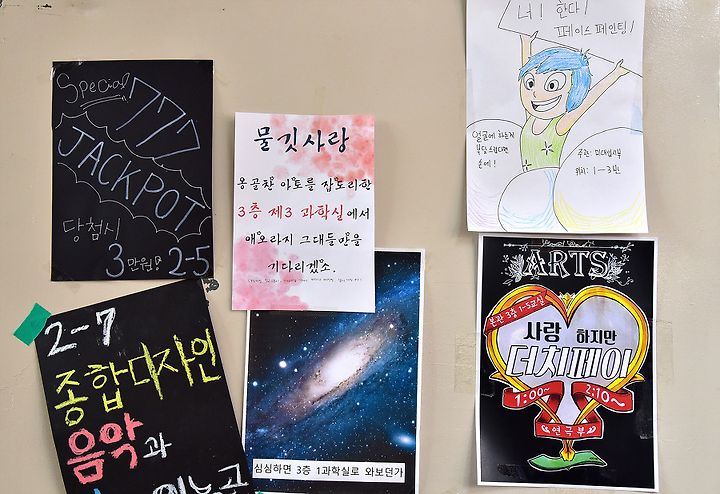 Special
777
JACKPOT
당첨시
3만원! 2-5
2-7
종합디자인
음악과
물깃사랑
옹골찬 아토를 잡도리한
3층 제3 과학실에서
애오라지 그대들만을
기다리겠소.
심심하면 3층 1과학실로 와보던가
너! 한다!
페이스 페인팅!
얼굴에 하는지
손에!
위치: 1-3반
ARTS
본관 3층 1-5교실
사랑 하지만
더치페이
1:00~ 2:10~
연극부